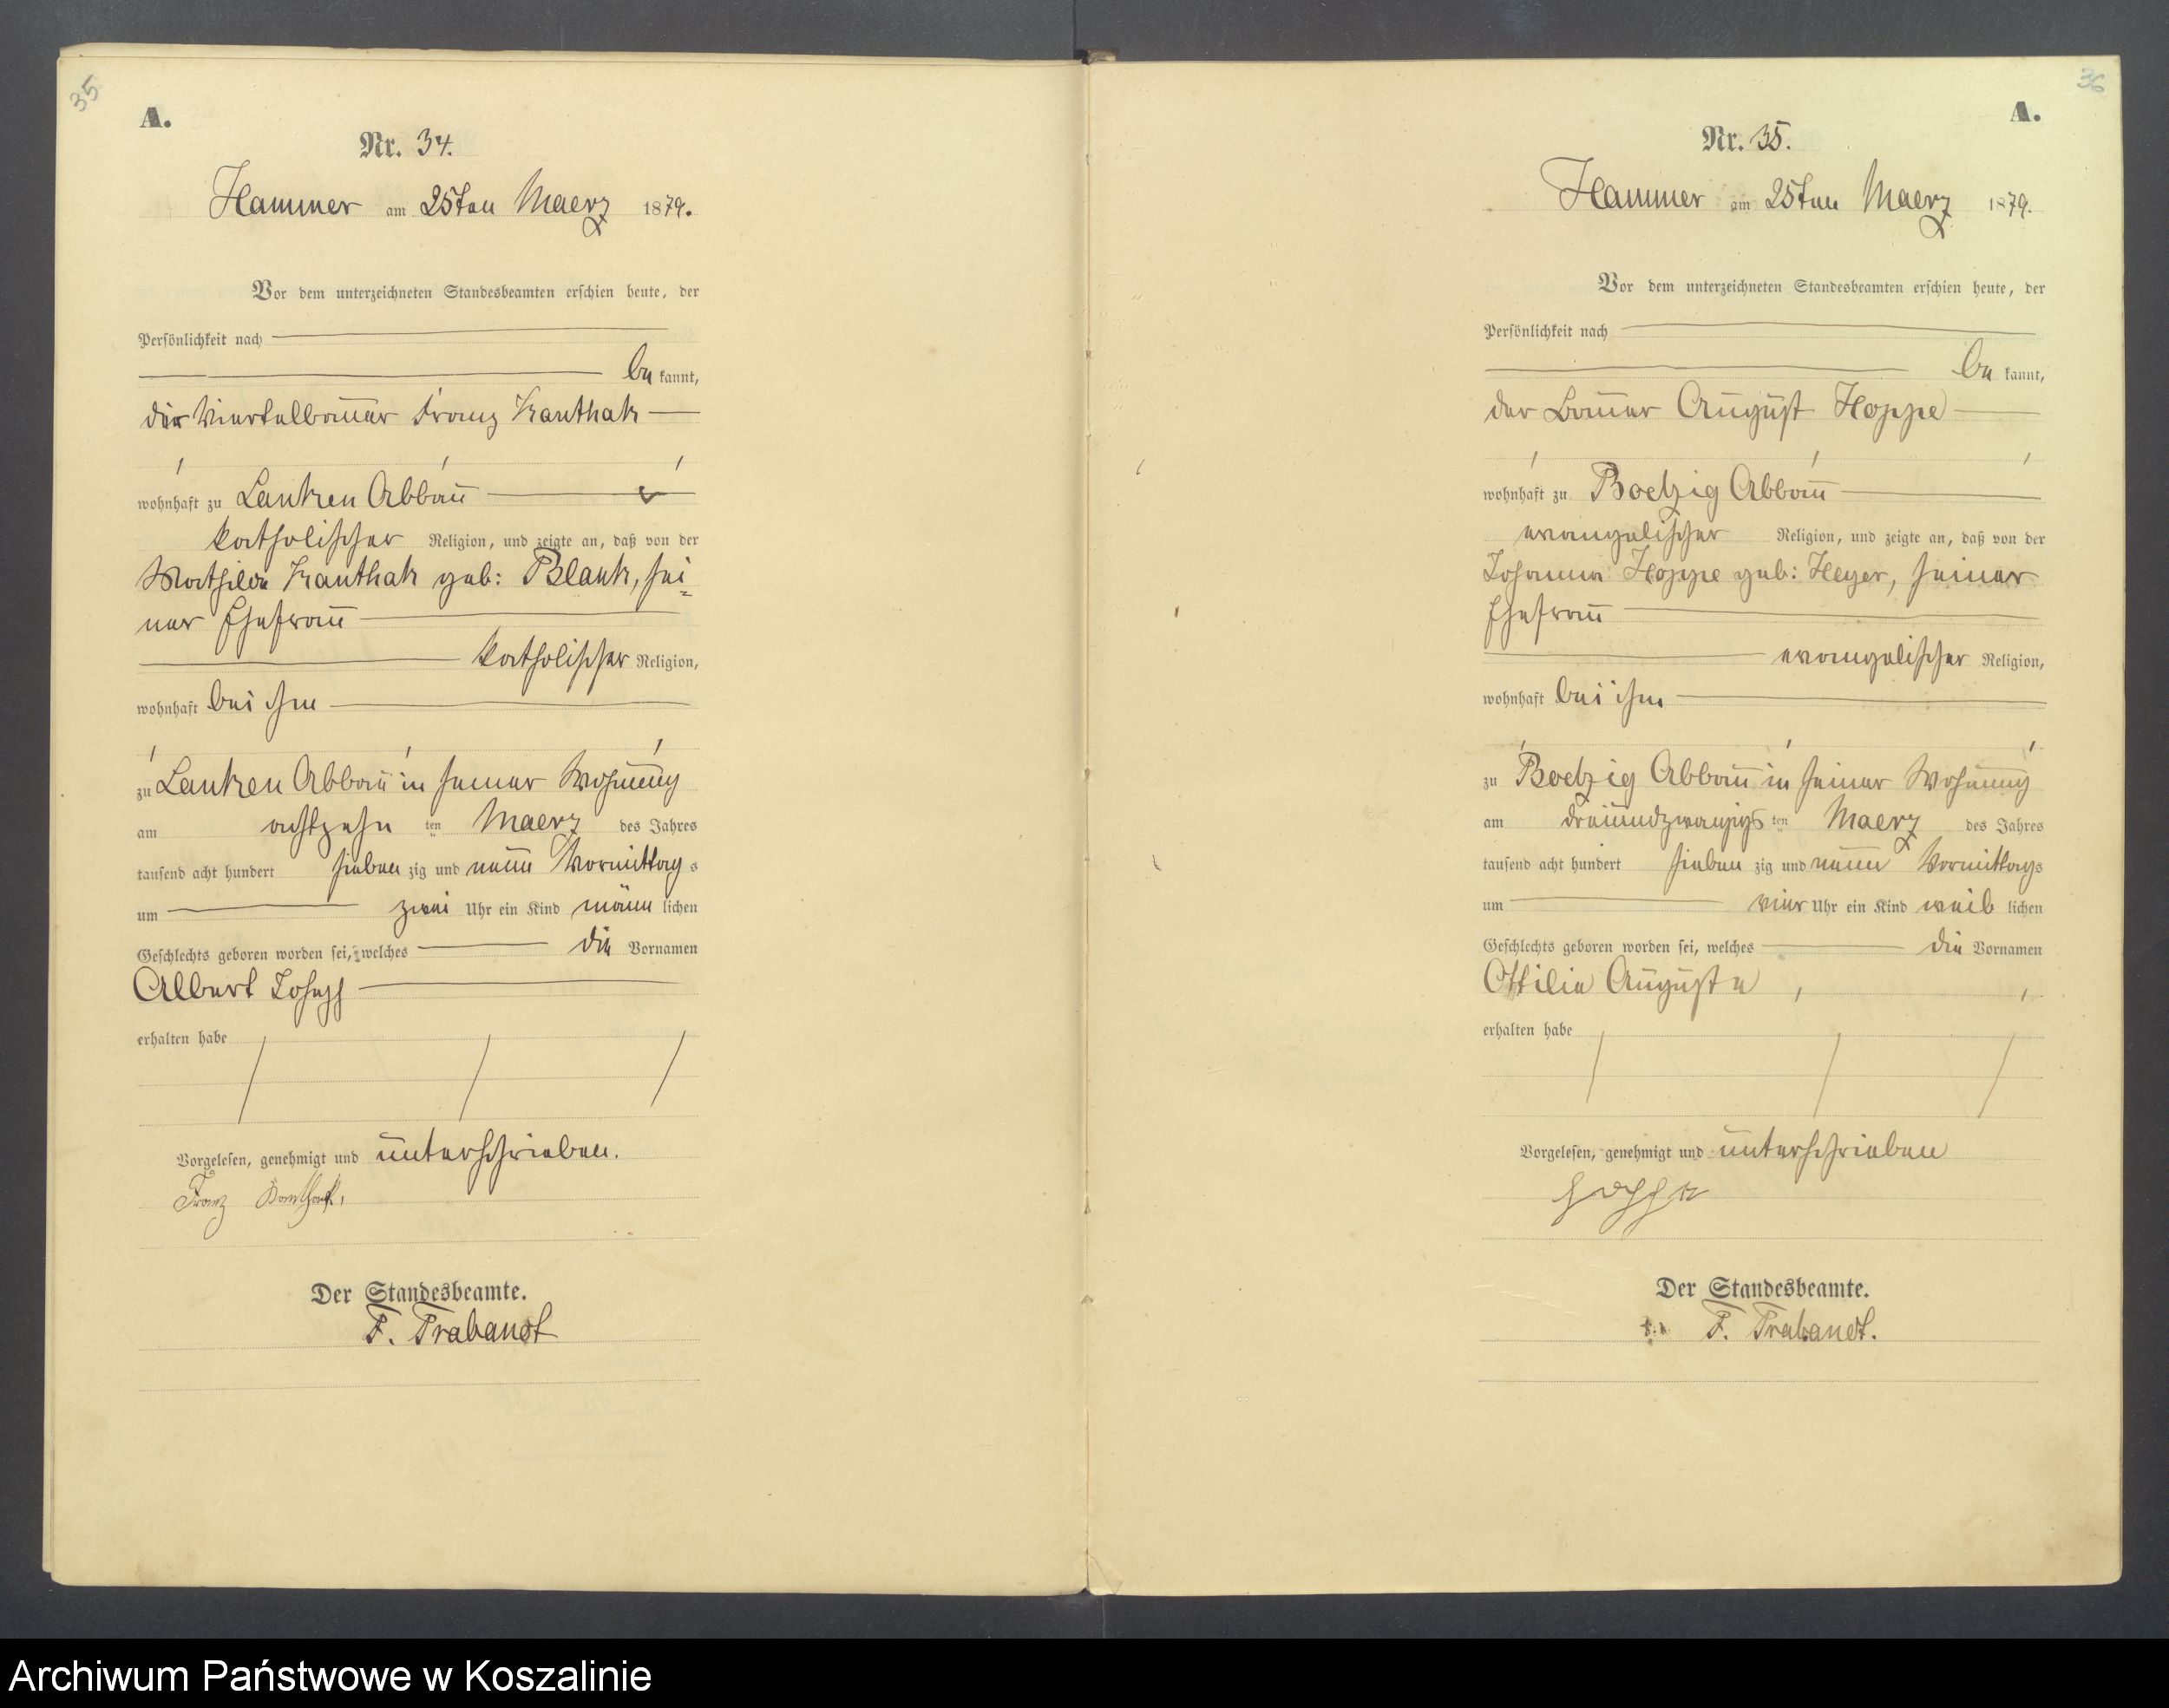 35
A.
Nr. 34.
Hammer am 25ten Maerz 1879.
Vor dem unterzeichneten Standesbeamten erschien heute, der
Persönlichkeit nach
be kannt,
der Viertelbauer Franz Kanthak
wohnhaft zu Lanken Abbau
katholischer Religion, und zeigte an, daß von der
Mathilde Kanthak geb: Blank, sei=
ner Ehefrau
katholischer Religion,
wohnhaft bei ihm
zu Lanken Abbau in seiner Wohnung
am achtzehn ten Maerz des Jahres
tausend acht hundert sieben zig und neun Vormittag s
um zwei Uhr ein Kind männ lichen
Geschlechts geboren worden sei, welches die Vornamen
Albert Joseph
erhalten habe
Vorgelesen, genehmigt und unterschrieben.
Franz Kanthak,
Der Standesbeamte.
F. Trabandt
36
A.
Nr. 35.
Hammer am 25ten Maerz 1879.
Vor dem unterzeichneten Standesbeamten erschien heute, der
Persönlichkeit nach
be kannt,
der Bauer August Hoppe
wohnhaft zu Boetzig Abbau
evangelischer Religion, und zeigte an, daß von der
Johanna Hoppe geb: Heyer, seiner
Ehefrau
evangelischer Religion,
wohnhaft bei ihm
zu Boetzig Abbau in seiner Wohnung
am dreiundzwanzigs ten Maerz des Jahres
tausend acht hundert sieben zig und neun Vormittags
um vier Uhr ein Kind weib lichen
Geschlechts geboren worden sei, welches die Vornamen
Ottilie Auguste
erhalten habe
Vorgelesen, genehmigt und unterschrieben
Hoppe
Der Standesbeamte.
F. Trabandt.
Archiwum Państwowe w Koszalinie